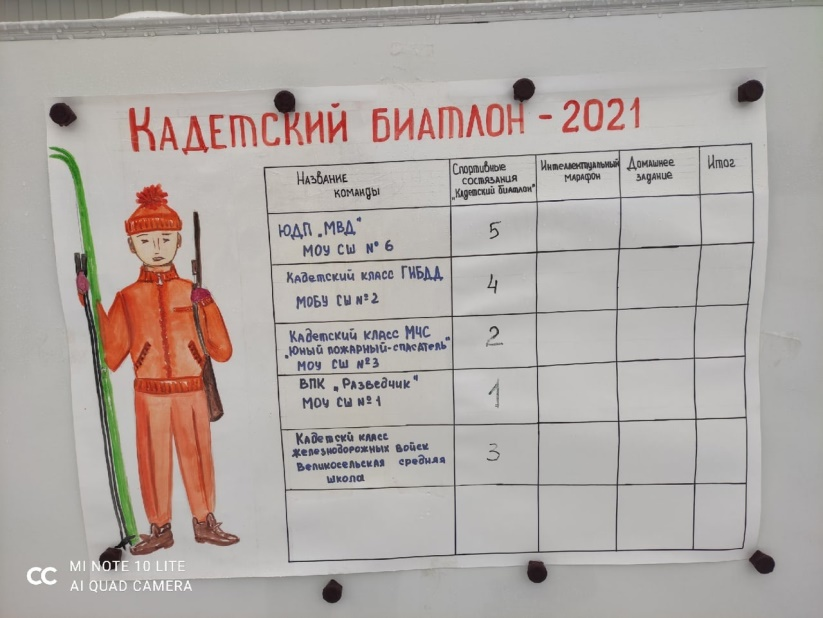 КАДЕТСКИЙ БИАТЛОН - 2021
НАЗВАНИЕ
КОМАНДЫ
СПОРТИВНЫЕ
СОСТЯЗАНИЯ
„КАДЕТСКИЙ БИАТЛОН"
ИНТЕЛЛЕКТУАЛЬНЫЙ
МАРАФОН
ДОМАШНЕЕ
ЗАДАНИЕ
ИТОГ
ЮДП „МВД"
МОУ СШ № 6
5
КАДЕТСКИЙ КЛАСС ГИБДД
МОБУ СШ №2
4
КАДЕТСКИЙ КЛАСС МЧС
„ЮНЫЙ ПОЖАРНЫЙ-СПАСАТЕЛЬ"
МОУ СШ №3
2
ВПК „РАЗВЕДЧИК"
МОУ СШ №1
1
КАДЕТСКЙ КЛАСС
ЖЕЛЕЗНОДОРОЖНЫХ ВОЙСК
ВЕЛИКОСЕЛЬСКАЯ СРЕДНЯЯ
ШКОЛА
3
MI NOTE 10 LITE
AI QUAD CAMERA